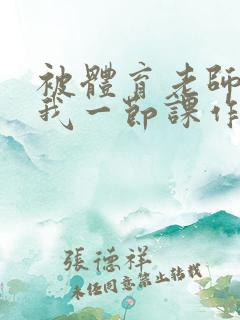 被體育老師
我一節課作
張德祥
未經同意禁止轉載